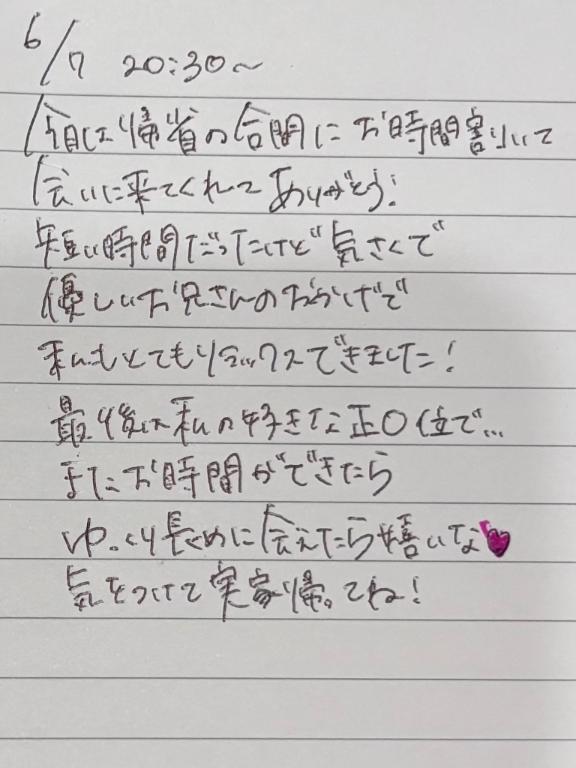 6/7 20:30〜
今日は帰省の合間にお時間割いて
会いに来てくれてありがとう!
短い時間だったけど気さくで
優しいお兄さんのおかげで
私もとてもリラックスできました!
最後は私の好きな正〇位で...
またお時間ができたら
ゆっくり長めに会えたら嬉いな
気をつけて実家帰ってね!